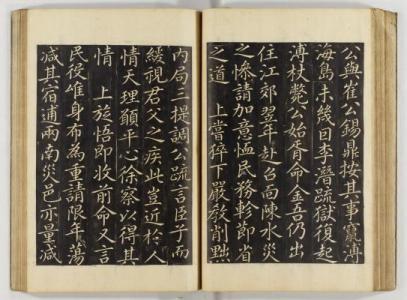 公與崔公錫鼎按其事竄溥
海島未幾因李潛疏獄復起
溥杖斃公始胥命金吾仍出
住江郊翌年赴台面陳水災
之慘請加意恤民務軫卽省
之道 上嘗猝下嚴敎削黜
內局三提調公疏言臣子而
緩視君父之疾此豈近於人
情天理願平心徐察以得其
情 上旋悟卽收前命又言
民役唯身布為重請限年蕩
减其宿逋兩南災邑亦量减